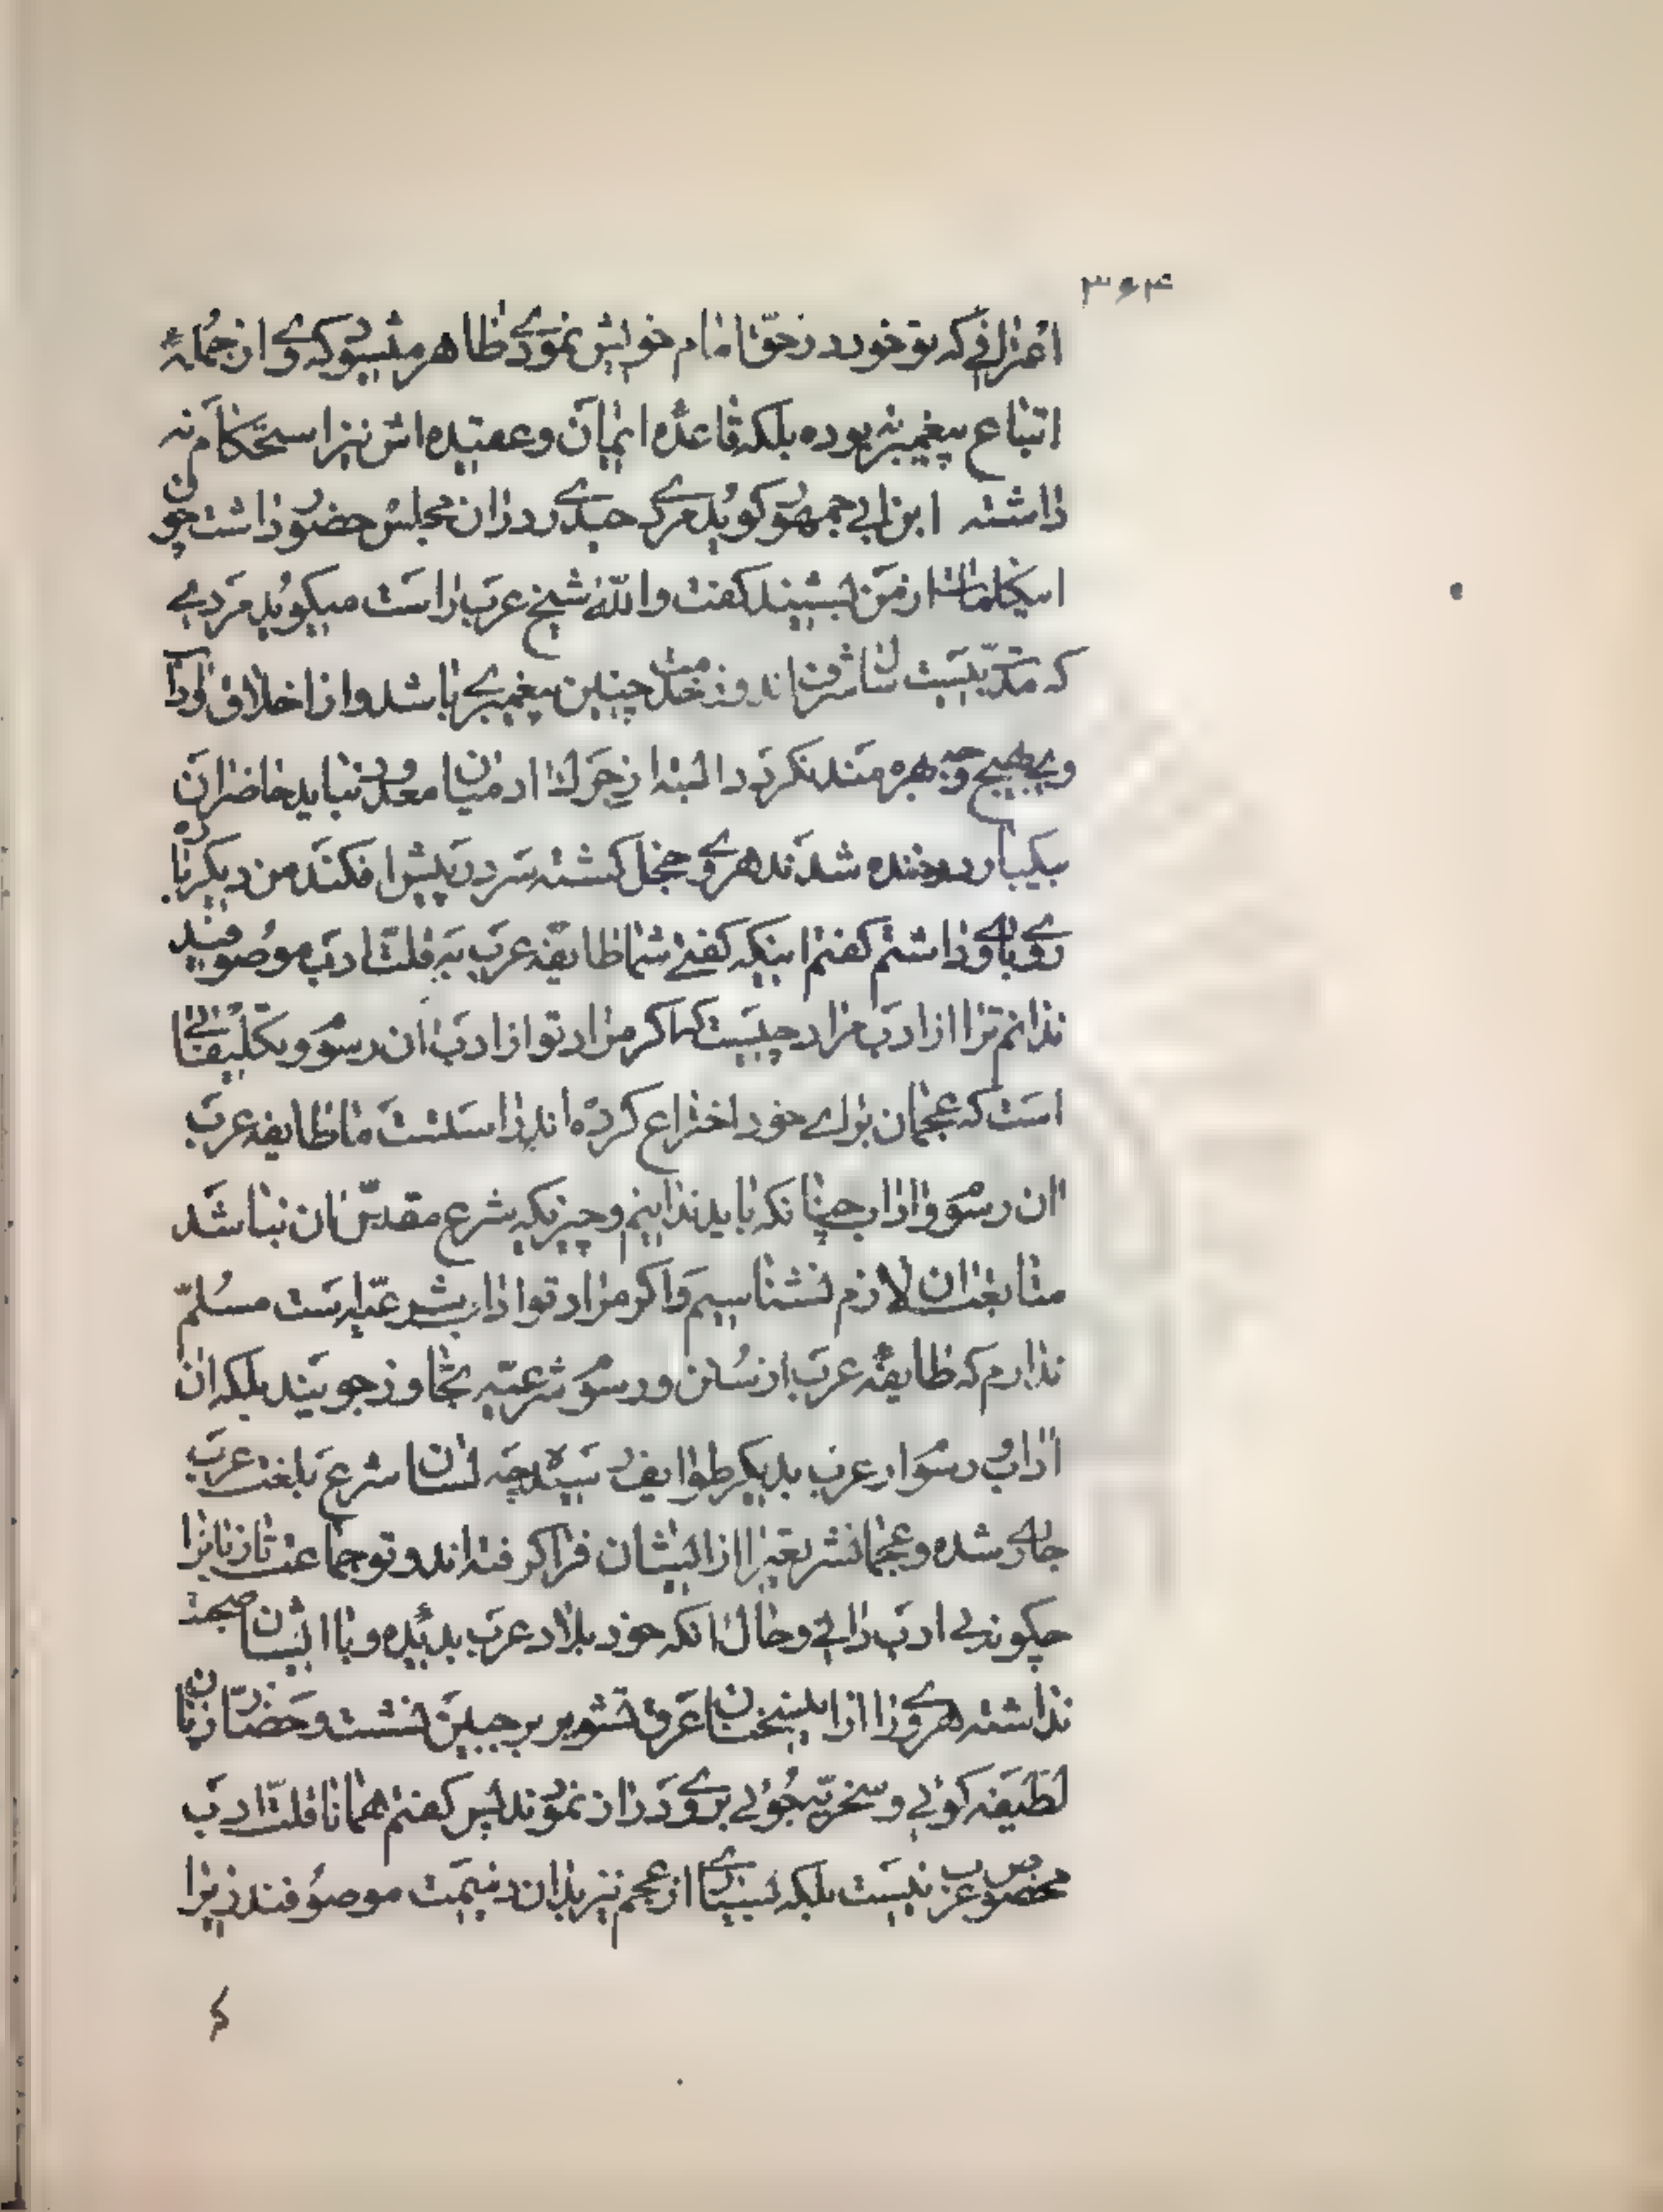 ۳۶۴
اعترافی که تو خود در حقّ امام خویش نمودی ظاهر میشود که وی از جملهٔ
اتباع پیغمبر نبوده بلکه قاعدهٔ ایمان و عقیده اش نیز استحکام نه
داشته ابن ابی جمهور گوید مردی جیّدی در ان مجلس حضور داشت چون
اینکلمات از من بشنید گفت والله شیخ عرب راست میگوید مردی
که مدّت بیست سال شرف اندوز خدمت چنین پیغمبری باشد و از اخلاق و اداب
وی بهیچ وجه بهره مند نگردد البته از زمرهٔ ادمیان معدود نیاید حاضران
بیکبار در خنده شدند هروی خجل گشته سر در پیش افکند من دیگرباره
روی باوی داشتم گفتم اینکه گفتی شما طایفه عرب به قلت ادب موصوفید
ندانم ترا از ادب مراد چیست که اگر مراد تو از ادب ان رسوم و تکلیفاتی
است که عجمان برای خود اختراع کرده اند راستست ما طایفه عرب
ان رسوم و اداب چنانکه باید ندانیم و چیزیکه شرع مقدّس بان نباشد
متابعت ان لازم نشناسیم و اگر مراد تو اداب شرعیه است مسلّم
ندارم که طایفهٔ عرب از سنن و رسوم شرعیه تجاوز جویند بلکه ان
اداب و رسوم از عرب بدیگر طوایف رسیده چه لسان شرع بلغت عرب
جاری شده و عجمان شریعت را از ایشان فرا گرفته اند و تو جماعت تازیانرا
چگونه بی ادب دانی و حال انکه خود بلاد عرب بدیده و با ایشان صحبت
نداشته هروی را از این سخنان عرق تشویر بر جبین نشست و حضّار زبان
لطیفه گوئی و سخریه جوئی بروی دراز نمودند پس گفتم همانا قلت ادب
مخصوص عرب نیست بلکه بسیاری از عجم نیز بدان رسمت موصوفند زیرا